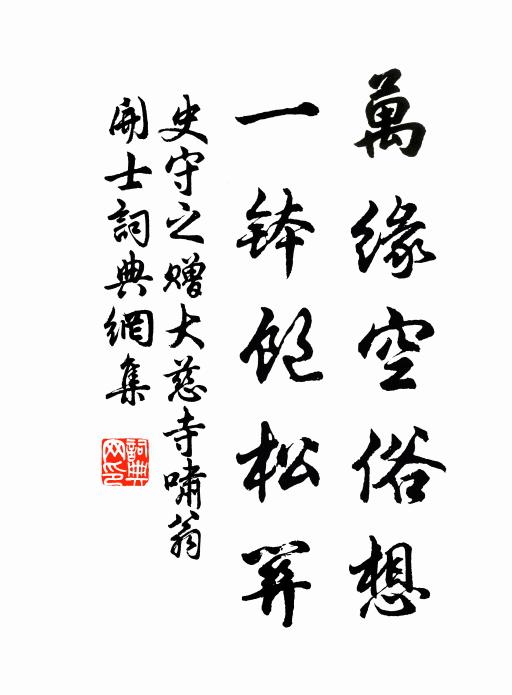 萬緣空俗想
一缽飽松關
史守之贈大慈寺嘯翁
開士詞典網集
詞典
网印